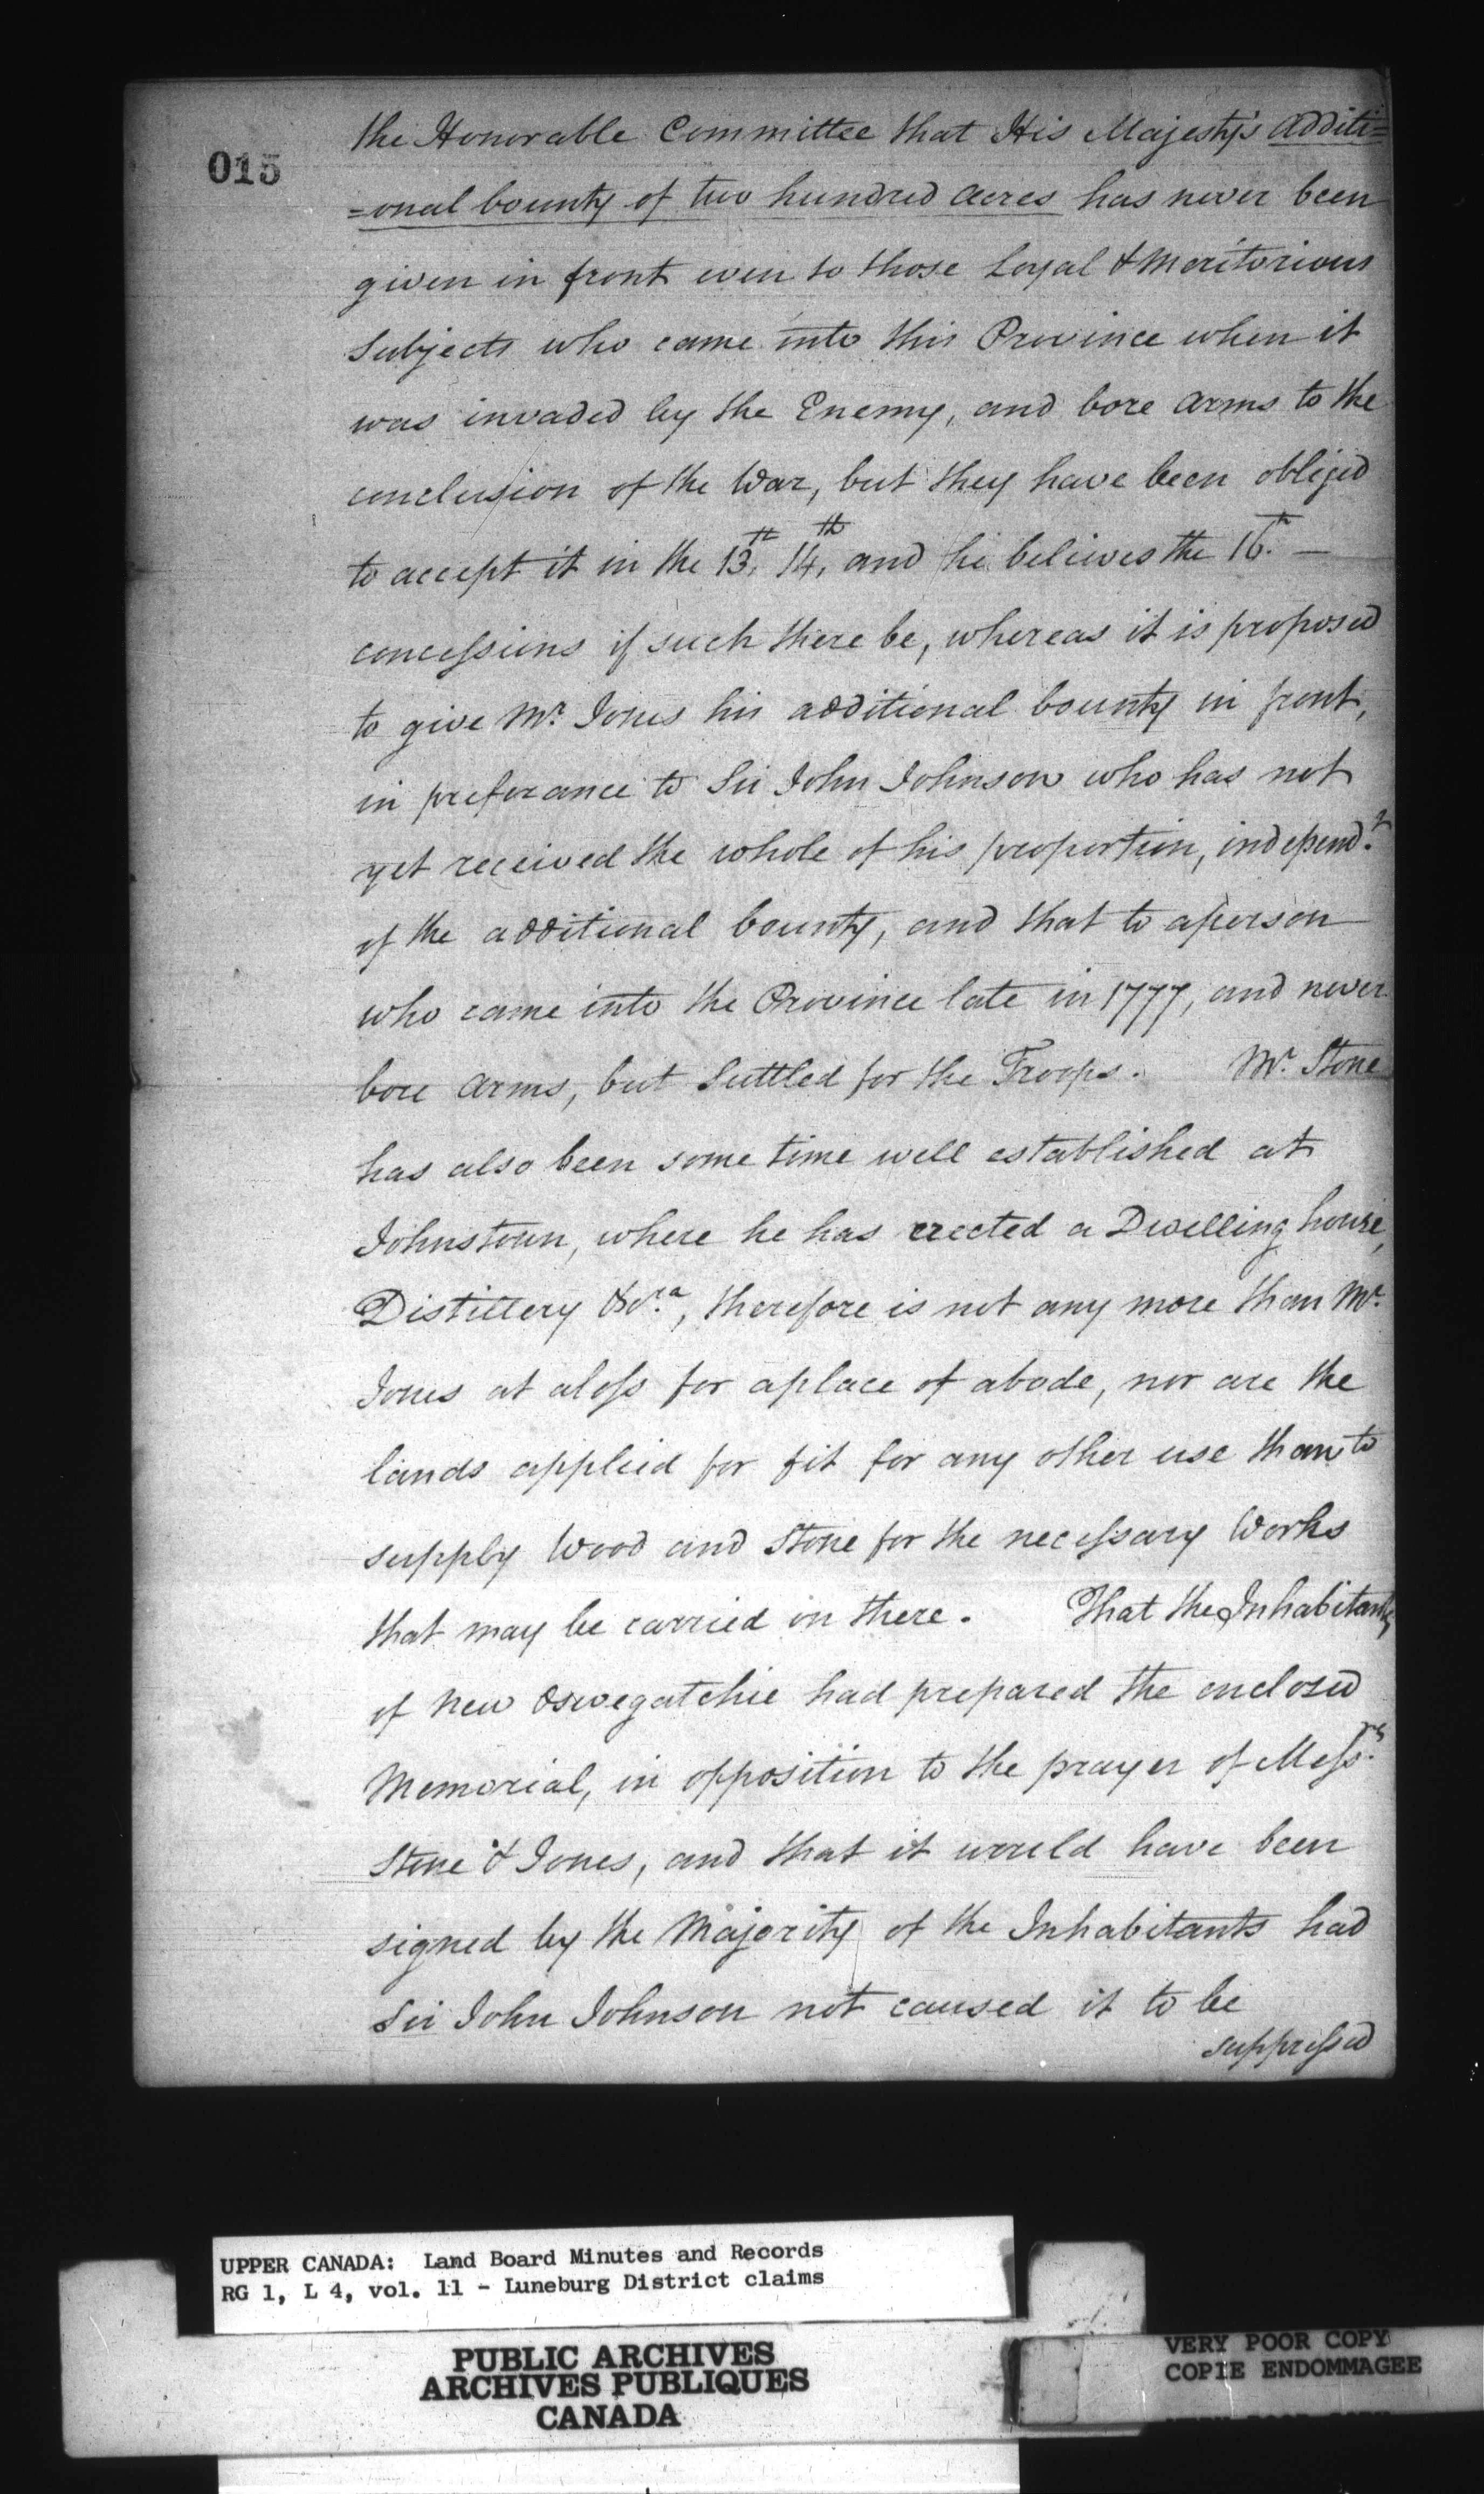 015
the Honorable Committee that His Majesty's additi=
=onal bounty of two hundred acres has never been
given in front even to those Loyal & Meritorious
Subjects who came into this Province when it
was invaded by the Enemy, and bore arms to the
conclusion of the War, but they have been obliged
to accept it in the 13th, 14th, and he believes the 16th —
concessions if such there be, whereas it is proposed
to give Mr. Jones his additional bounty in front,
in preferance to Sir John Johnson who has not
yet received the whole of his proportion, independ.t
of the additional bounty, and that to a person
who came into the Province late in 1777, and never
bore arms, but Suttled for the Troops. Mr. Stone
has also been some time well established at
Johnstown, where he has erected a Dwelling house,
Distillery &c.a, therefore is not any more than Mr.
Jones at a loss for a place of abode, nor are the
lands applied for fit for any other use than to
supply Wood and Stone for the necessary Works
that may be carried on there. That the Inhabitants
of New Oswegatchie had prepared the enclosed
Memorial, in opposition to the prayer of Mess.rs
Stone & Jones, and that it would have been
signed by the Majority of the Inhabitants had
Sir John Johnson not caused it to be
suppressed
UPPER CANADA: Land Board Minutes and Records
RG 1, L 4, vol. 11 - Luneburg District claims
PUBLIC ARCHIVES
ARCHIVES PUBLIQUES
CANADA
VERY POOR COPY
COPIE ENDOMMAGEE